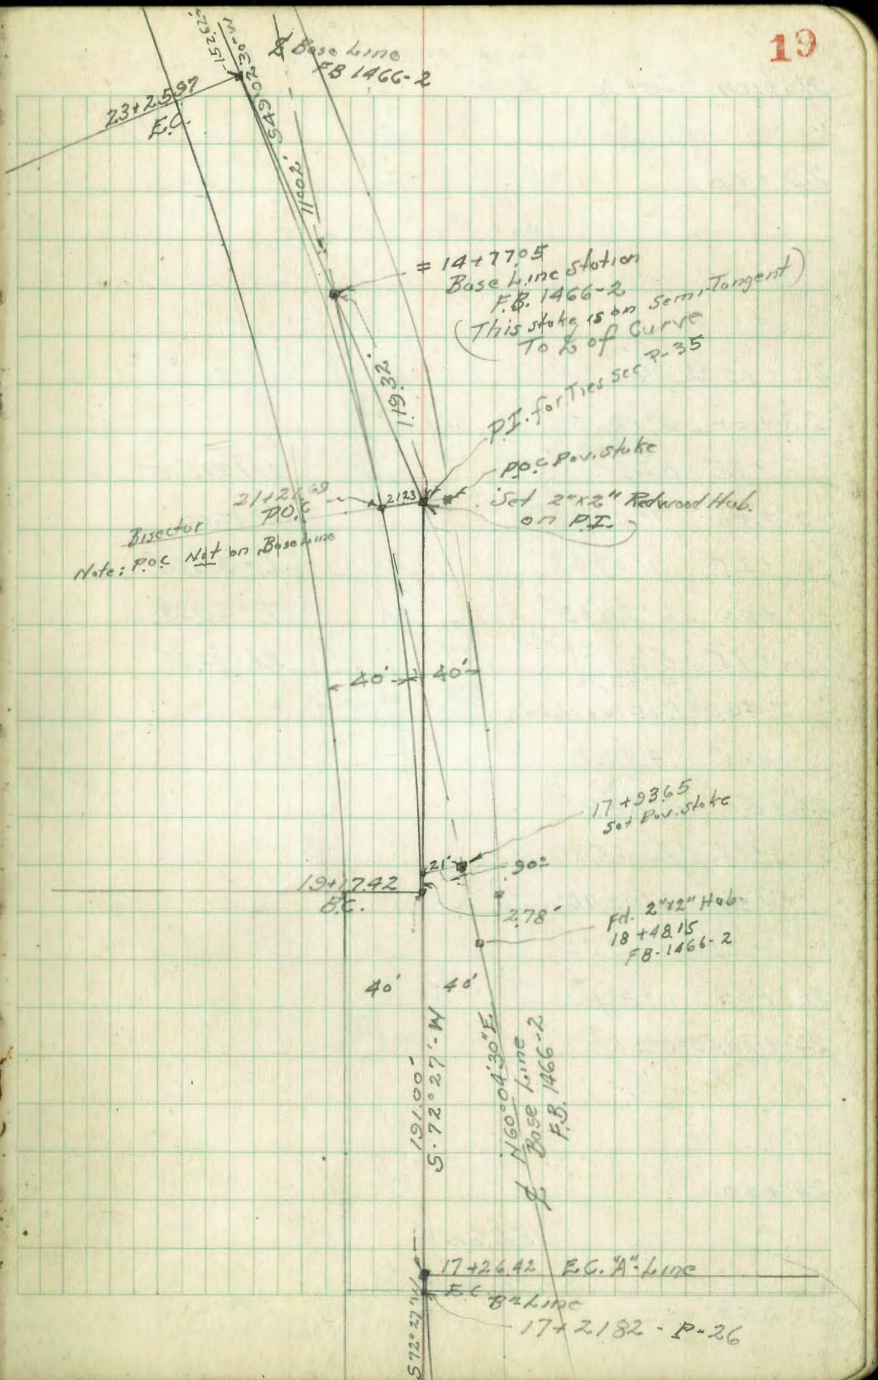 19
152.62
S49°02'30"W
℄ Base Line
FB 1466-2
23+25.97
E.C.
11°02'
= 14+77.05
Base Line Station
F.B. 1466-2
(This stake is on Semi-Tangent)
To ℄ of Curve
119.32'
P.I. for Ties see P-35
P.O.C Pav. Stake
Set 2"x2" Redwood Hub.
on P.I.
21+21.69
P.O.C
21.23
Bisector
Note: P.O.C Not on Base Line
40' 40'
17+93.65
Set Pav. Stake
21'
90°
19+17.42
B.C.
2.78'
Fd. 2"x2" Hub-
18+48.15
FB-1466-2
40' 40'
191.00'
S-72°27'-W
N60°04'30"E
℄ Base Line
F.B. 1466-2
17+26.42 E.C. "A"-Line
E.C
B= Line
17+21.82 - P-26
S72°27'W